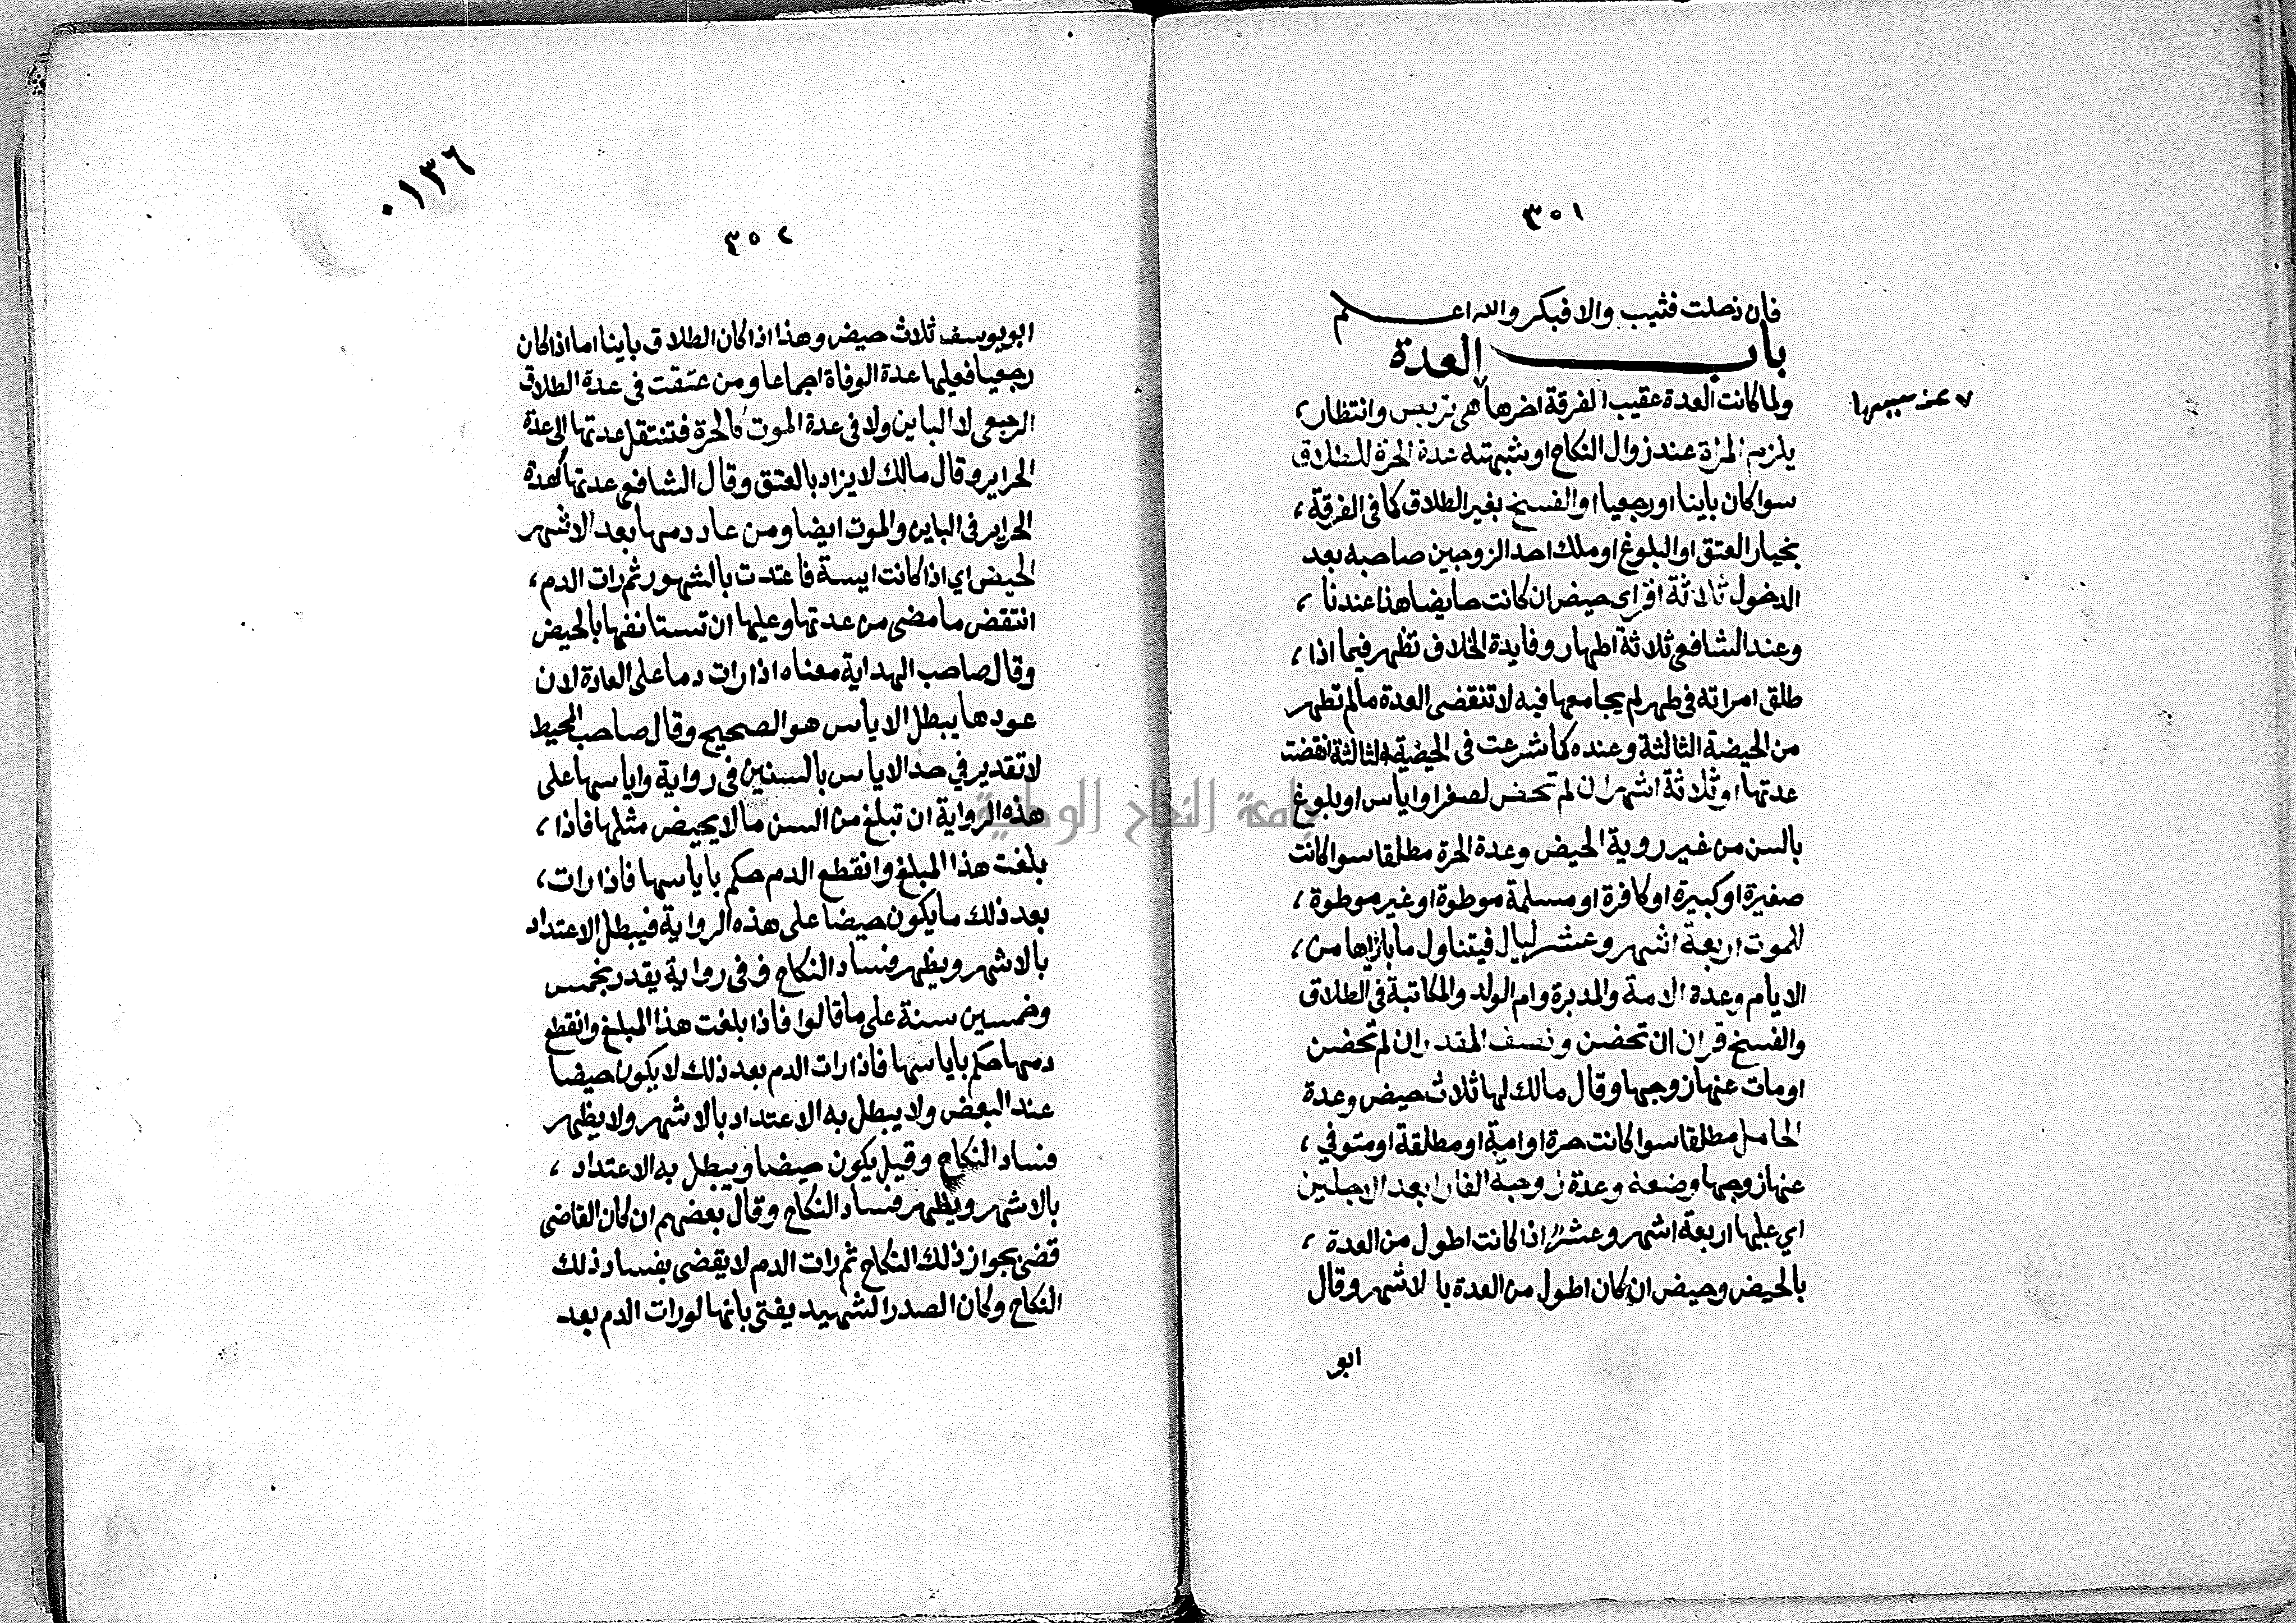 ٣٥١
فان نصلت فثيب والا فبكر والله اعلم
باب العدة
ولما كانت العدة عقيب الفرقة اخرها هي تربص وانتظار،
عن سببها
يلزم المراة عند زوال النكاح او شبهته عدة الحرة للطلاق
سوا كان باينا او رجعيا او الفسخ بغير الطلاق كما في الفرقة،
بخيار العتق او البلوغ او ملك احد الزوجين صاحبه بعد
الدخول ثلاثة اقراي حيض ان كانت حايضا هذا عندنا،
وعند الشافعي ثلاثة اطهار وفايدة الخلاف تظهر فيما اذا،
طلق امراته في طهر لم يجامعها فيه لا تنقضي العدة مالم تطهر
من الحيضة الثالثة وعنده كما شرعت في الحيضة الثالثة انقضت
عدتها او ثلاثة اشهر ان لم تحض لصغر او اياس او بلوغ
بالسن من غير روية الحيض وعدة الحرة مطلقا سوا كانت
صغيرة او كبيرة او كافرة او مسلمة موطوة او غير موطوة،
للموت اربعة اشهر وعشر ليال فيتناول ما بازايها من،
الايام وعدة الامة والمدبرة وام الولد والمكاتبة في الطلاق
والفسخ قران ان تحضن ونصف المقدر ان لم تحضن
او مات عنها زوجها وقال مالك لها ثلاث حيض وعدة
الحامل مطلقا سوا كانت حرة او امة او مطلقة او متوفي،
عنها زوجها وضعه وعدة زوجة الفار ابعد الاجلين
اي عليها اربعة اشهر وعشرا اذا كانت اطول من العدة،
بالحيض وحيض ان كان اطول من العدة بالاشهر وقال
ابو
٠١٣٦
٣٥٢
ابو يوسف ثلاث حيض وهذا اذا كان الطلاق باينا اما اذا كان
رجعيا فعليها عدة الوفاة اجماعا ومن عتقت في عدة الطلاق
الرجعي لا الباين ولا في عدة الموت كالحرة فتنتقل عدتها الى عدة
الحراير وقال مالك لا يزاد بالعتق وقال الشافعي عدتها كعدة
الحراير في الباين والموت ايضا ومن عاد دمها بعد الاشهر
الحيض اي اذا كانت ايسة فاعتدت بالشهور ثم رات الدم،
انتقض ما مضى من عدتها وعليها ان تستانفها بالحيض
وقال صاحب الهداية معناه اذا رات دما على العادة لان
عودها يبطل الاياس هو الصحيح وقال صاحب المحيط
لا تقدير في حد الاياس بالسنين في رواية واياسها على
هذه الرواية ان تبلغ من السن مالا يحيض مثلها فاذا،
بلغت هذا المبلغ وانقطع الدم حكم باياسها فاذا رات،
بعد ذلك ما يكون حيضا على هذه الرواية فيبطل الاعتداد
بالاشهر ويظهر فساد النكاح وفي رواية يقدر بخمس
وخمسين سنة على ما قالوا فاذا بلغت هذا المبلغ وانقطع
دمها حكم باياسها فاذا رات الدم بعد ذلك لا يكون حيضا
عند البعض ولا يبطل به الاعتداد بالاشهر ولا يظهر
فساد النكاح وقيل يكون حيضا ويبطل به الاعتداد،
بالاشهر ويظهر فساد النكاح وقال بعضهم ان كان القاضي
قضى بجواز ذلك النكاح ثم رات الدم لا يقضى بفساد ذلك
النكاح وكان الصدر الشهيد يفتي بانها لو رات الدم بعد
جامعة النجاح الوطنية